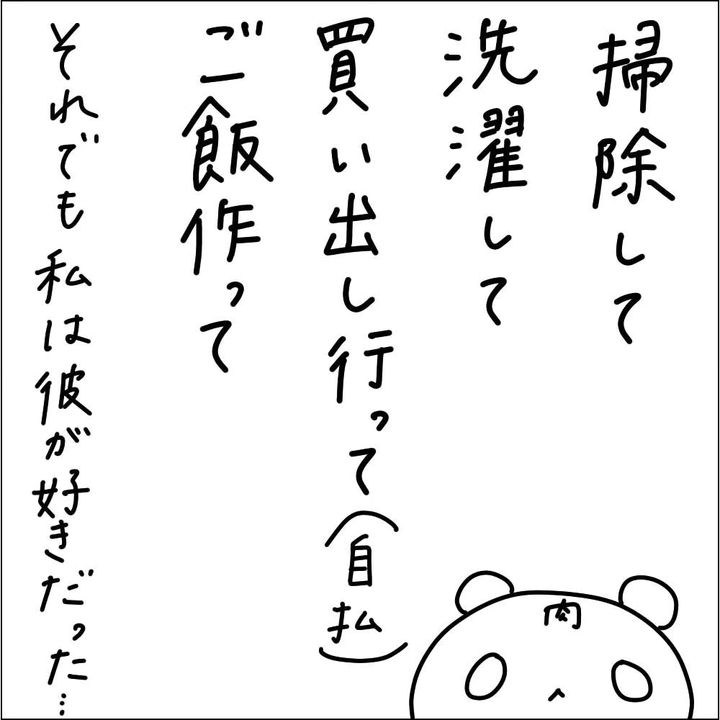 掃除して
洗濯して
買い出し行って(自払)
ご飯作って
それでも私は彼が好きだった…
肉